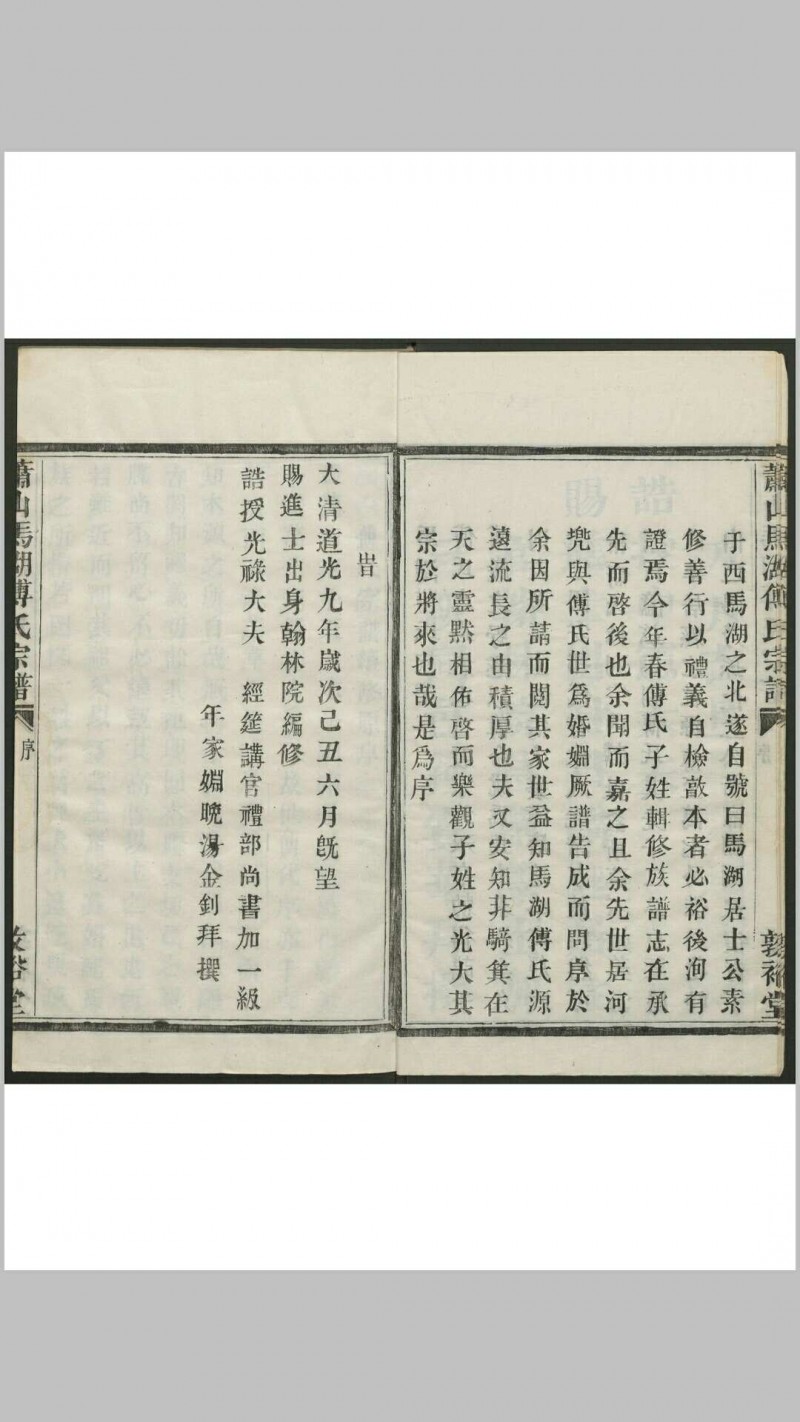 蕭山馬湖傅氏宗譜
敦裕堂
于西馬湖之北遂自號曰馬湖居士公素
修善行以禮義自檢敨本者必裕後洵有
證焉今年春傅氏子姓輯修族譜志在承
先而啓後也余聞而嘉之且余先世居河
兠與傅氏世爲婚婣厥譜告成而問序於
余因所請而閱其家世益知馬湖傅氏源
遠流長之由積厚也夫又安知非騎箕在
天之靈默相佑啓而樂觀子姓之光大其
宗於將來也哉是爲序
旹
大清道光九年歲次己丑六月旣望
賜進士出身翰林院編修
誥授光祿大夫　經筵講官禮部尚書加一級
年家婣晚湯金釗拜撰
蕭山馬湖傅氏宗譜
序
敦裕堂